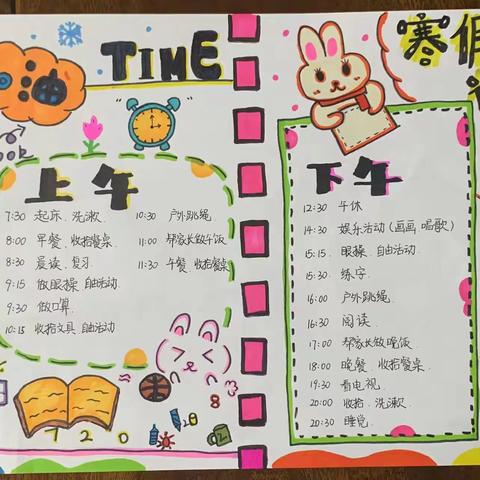 TIME
寒假
上午
7:30 起床、洗漱
8:00 早餐、收拾餐桌
8:30 晨读、复习
9:15 做眼操 自由活动
9:30 做口算
10:15 收拾文具 自由活动
10:30 户外跳绳
11:00 帮家长做午饭
11:30 午餐、收拾餐桌
7 2 0
下午
12:30 午休
14:30 娱乐活动(画画 唱歌)
15:15 眼操、自由活动
15:30 练字
16:00 户外跳绳
16:30 阅读
17:00 帮家长做晚饭
18:00 晚餐、收拾餐桌
19:30 看电视
20:00 收拾、洗漱
20:30 睡觉